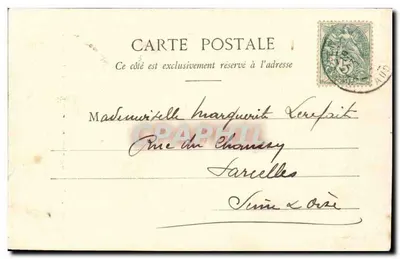 CARTE POSTALE
Ce côté est exclusivement réservé à l'adresse
Mademoiselle Marguerite Lerefait
Rue du Chaussy
Sarcelles
Seine & Oise